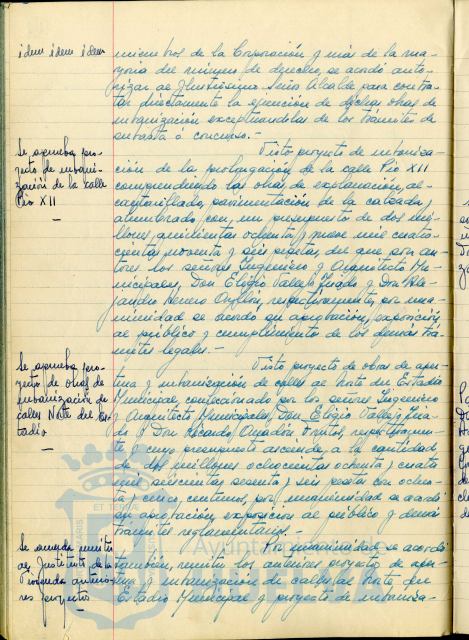 idem idem idem
miembros de la Corporación y más de la ma-
yoria del número de derecho, se acordó auto-
rizar al Ilustrísimo Señor Alcalde para contra-
tar directamente la ejecución de dichas obras de
urbanización exceptuandolas de los trámites de
subasta ó concurso.-
Se aprueba pro-
yecto de urbani-
zación de la calle
Pio XII
Visto proyecto de urbaniza-
ción de la prolongación de la calle Pio XII
comprendiendo las obras de explanación, al-
cantarillado, pavimentación de la calzada y
alumbrado, con un presupuesto de dos mi-
llones, quinientas ochenta y nueve mil cuatro-
cientas noventa y seis pesetas, del que son au-
tores los señores Ingeniero y Arquitecto Mu-
nicipales, Don Eligio Vallejo Jurado y Don Ale-
jandro Herrero respectivamente, por una-
nimidad se acordó su aprobación, exposición
al público y cumplimiento de los demás trá-
mites legales.-
Se aprueba pro-
yecto de obras de
urbanización de
calles Norte del Es-
tadio
Visto proyecto de obras de aper-
tura y urbanización de calles al Norte del Estadio
Municipal, confeccionado por los señores Ingeniero
y Arquitecto Municipales, Don Eligio Vallejo Jura-
do y Don Ricardo respectivamen-
te, cuyo presupuesto asciende a la cantidad
de dos millones ochocientas ochenta y cuatro
mil seiscientas sesenta y seis pesetas con ochen-
ta y cinco céntimos, por unanimidad se acordó
su aprobación, exposición al público y demás
trámites reglamentarios.-
Se acuerda remitir
al Instituto de la
Vivienda anterio-
res proyectos
Por unanimidad se acordó
también, remitir los anteriores proyecto de aper-
tura y urbanización de calles al Norte del
Estadio Municipal y proyecto de urbaniza-
Ayuntamiento de